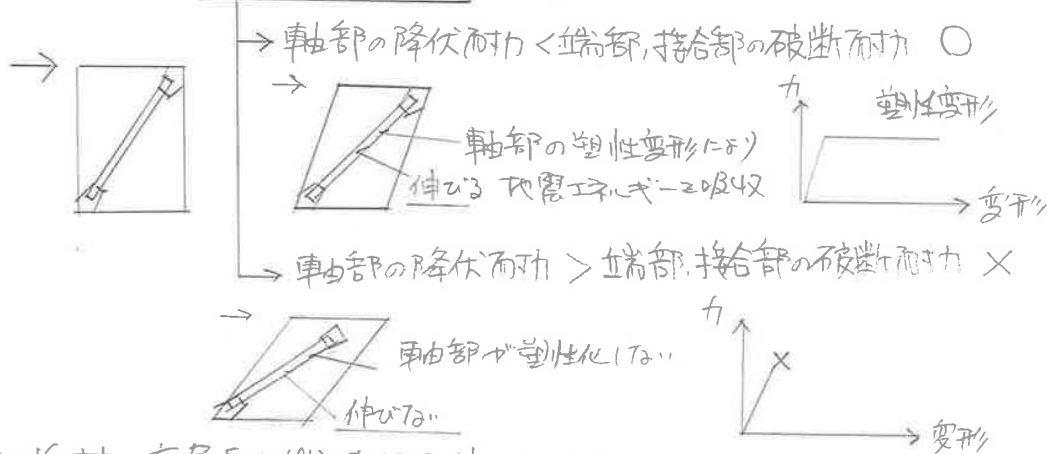 → 軸部の降伏耐力 < 端部,接合部の破断耐力 ○
→
→
力
塑性変形
軸部の塑性変形により
伸びる 地震エネルギーを吸収
変形
→ 軸部の降伏耐力 > 端部,接合部の破断耐力 ×
→
力
×
軸部が塑性化しない
伸びない
変形